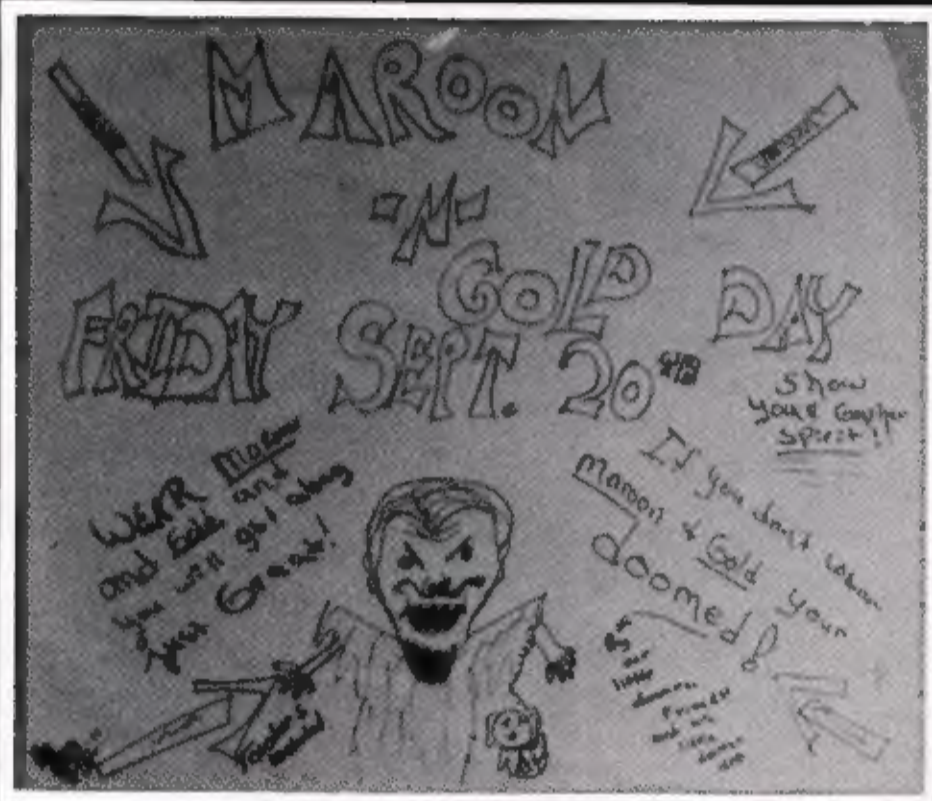 MAROON
-N-
GOLD DAY
FRIDAY SEPT. 20TH
Show
your Gopher
Spirit!!
WEAR Maroon
and Gold and
you will get along
Just Great!
If you don't wear
Maroon & Gold your
doomed!